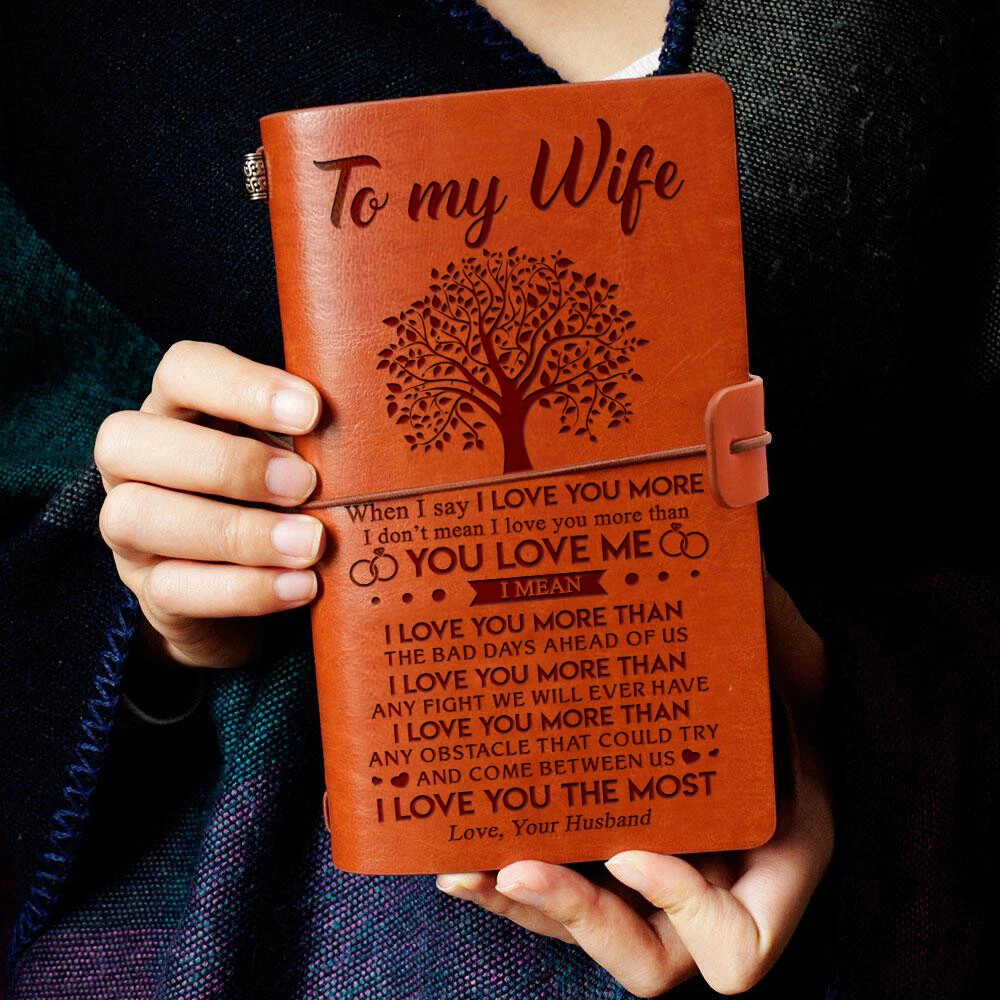 To my Wife
When I say I LOVE YOU MORE
I don't mean I love you more than
YOU LOVE ME
I MEAN
I LOVE YOU MORE THAN
THE BAD DAYS AHEAD OF US
I LOVE YOU MORE THAN
ANY FIGHT WE WILL EVER HAVE
I LOVE YOU MORE THAN
ANY OBSTACLE THAT COULD TRY
AND COME BETWEEN US
I LOVE YOU THE MOST
Love, Your Husband